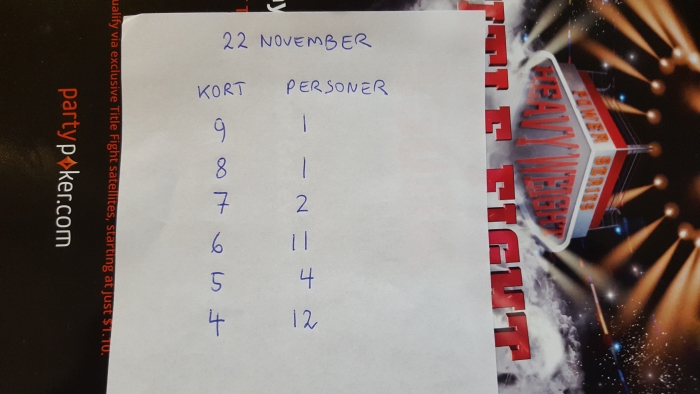 22 NOVEMBER
KORT PERSONER
9 1
8 1
7 2
6 11
5 4
4 12
partypoker.com
ualify via exclusive Title Fight satellites, starting at just $1.10.
TITLE FIGHT
HEAVYWEIGHT
POWER SERIES